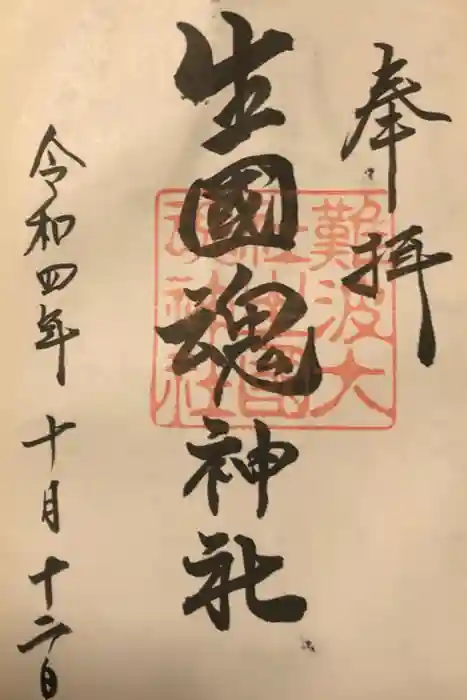 奉拝
難波大
社生國
魂神社
生國魂神社
令和四年 十月 十二日